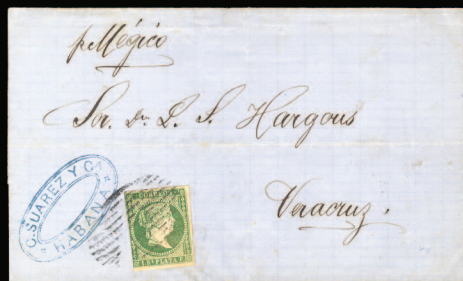 pr Mégico
Sor. Dn. L. S. Hargous
Veracruz.
C. SUAREZ Y Ca
HABANA
CORREOS
1 RL PLATA F.